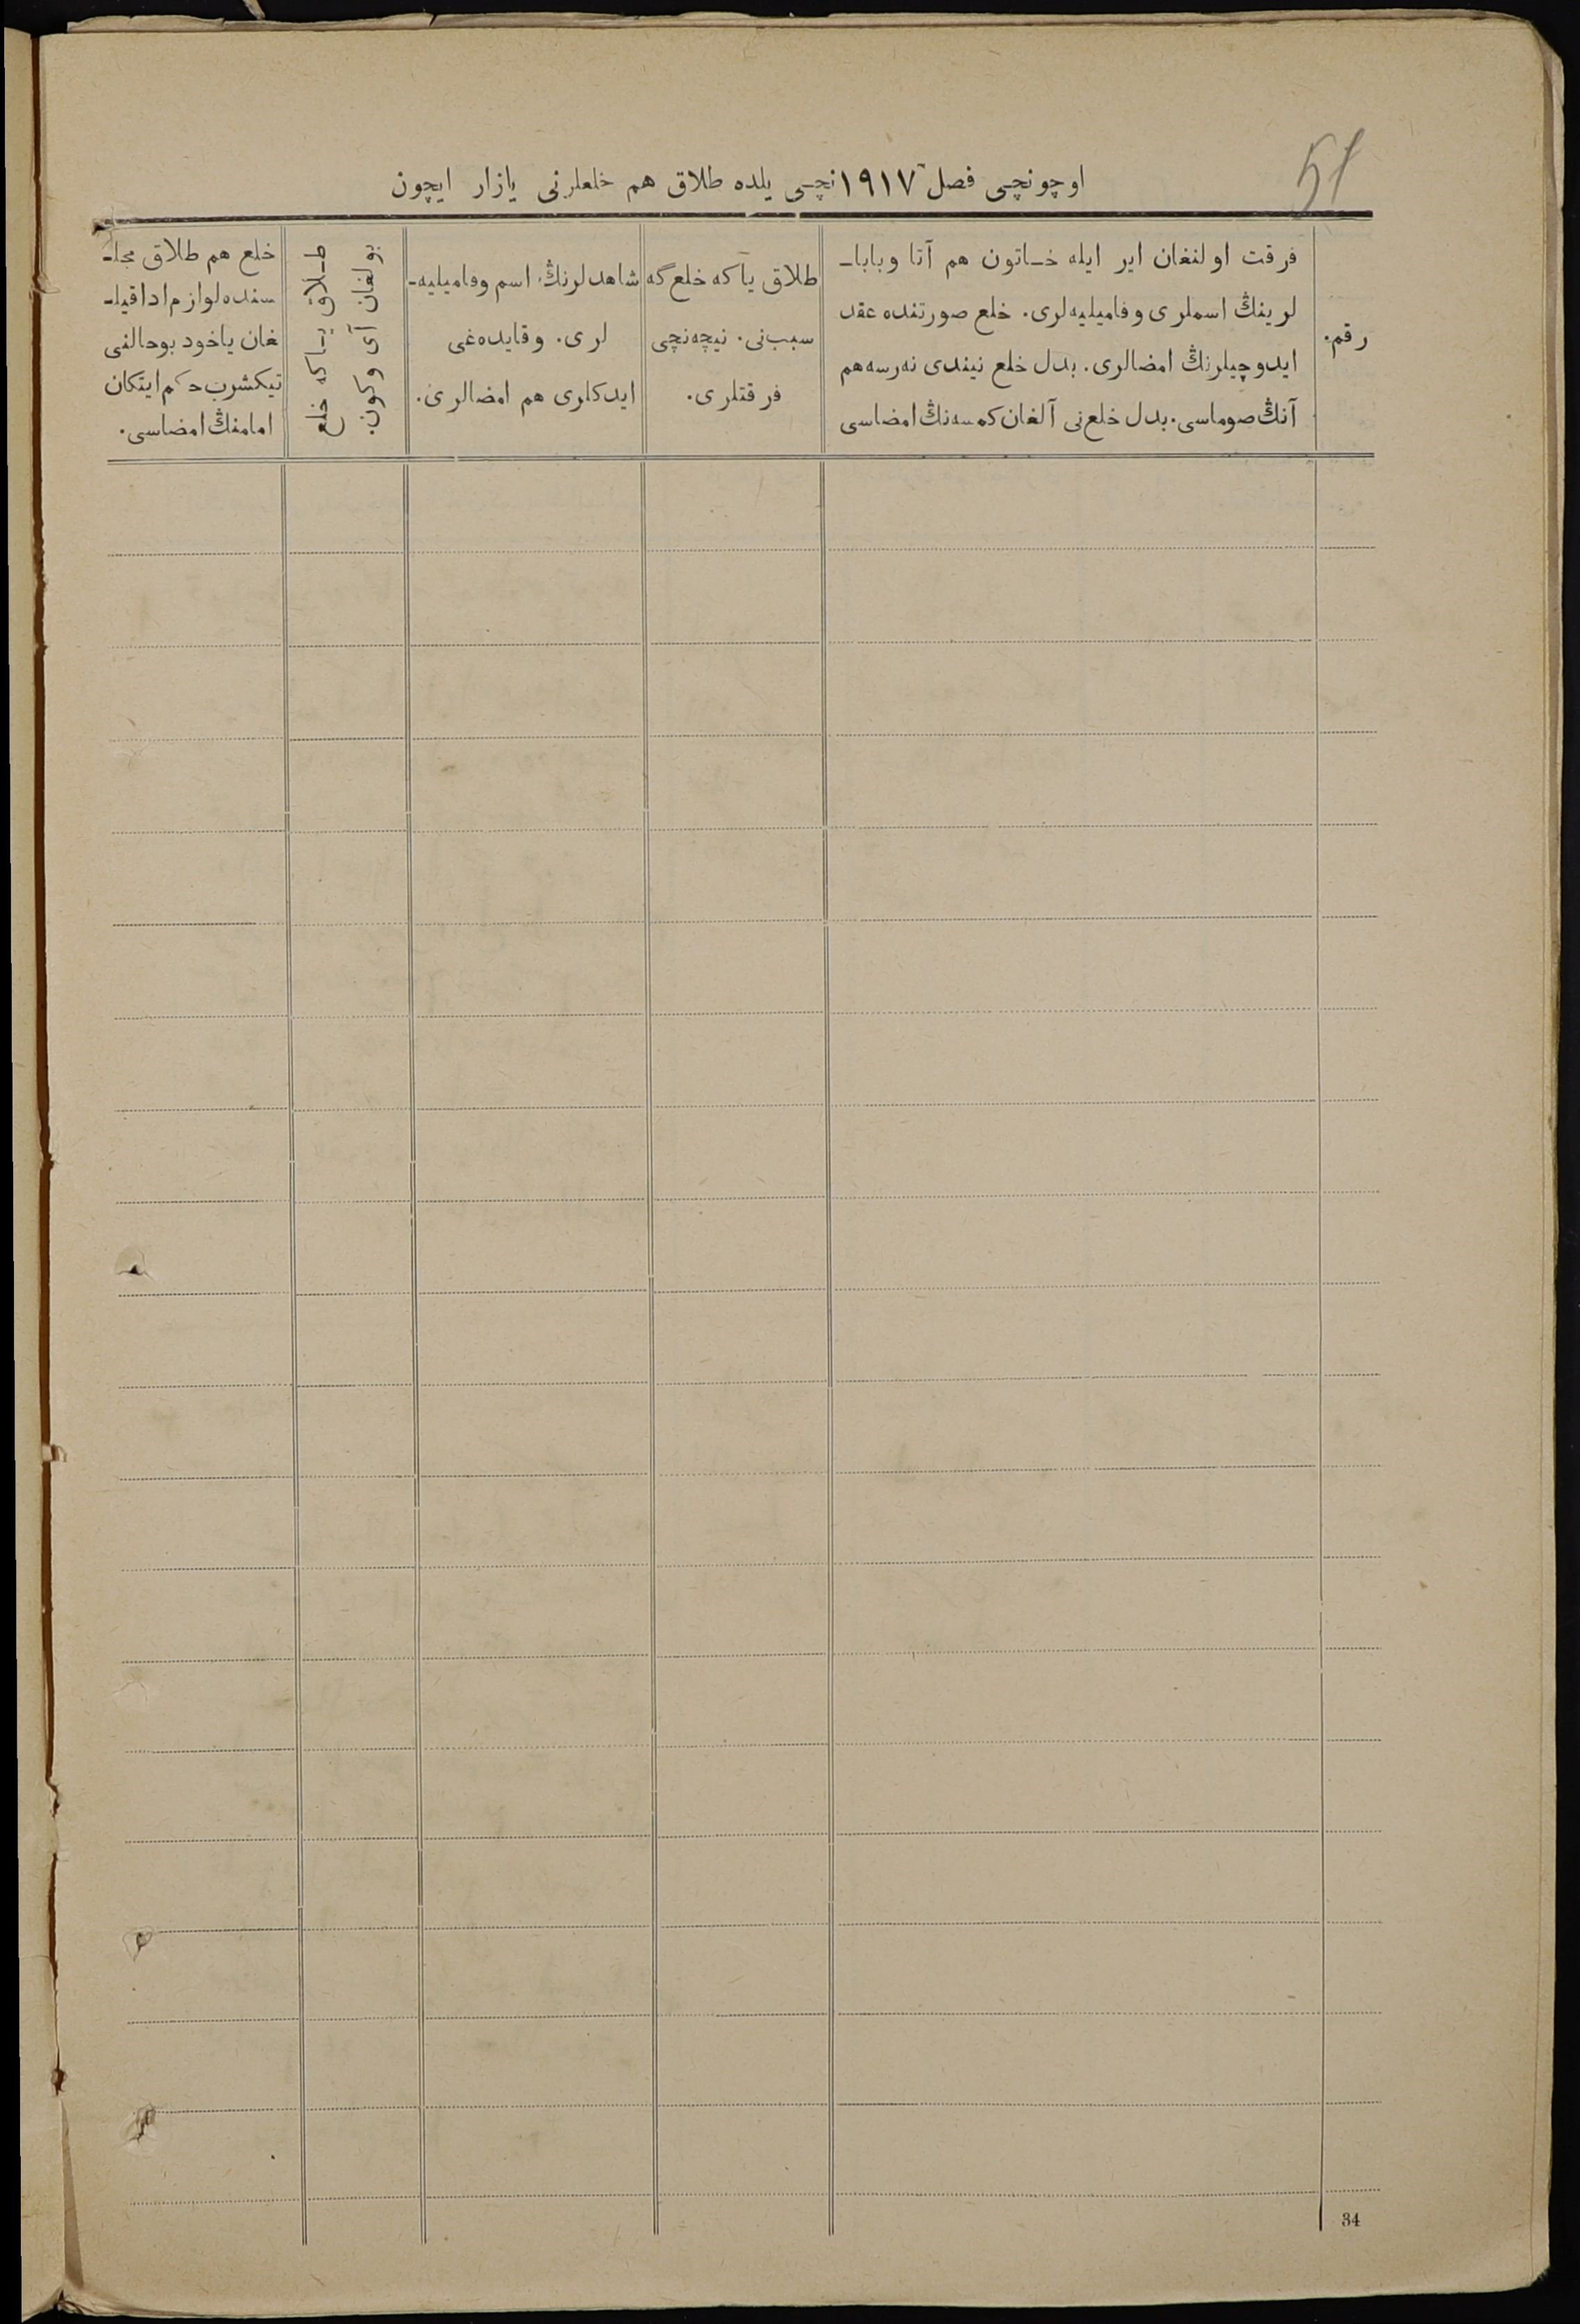 51
اوچونچی فصل ١٩١٧نچی یلده طلاق هم خلعلرنی یازار ایچون
رقم.
فرقت اولنغان ایر ایله خـاتون هم آتا وبابا‌ـ
لرینڭ اسملری وفامیلیه‌لری. خلع صورتنده عقد
ایدوچیلرنڭ امضالری. بدل خلع نیندی نه‌رسه هم
آنڭ صوماسی. بدل خلع‌نی آلغان کمسه‌نڭ امضاسی
طلاق یاکه خلع گه
سبب‌نی. نیچه‌نچی
فرقتلری.
شاهدلرنڭ اسم وفامیلیه‌ـ
لری. وقایده‌غی
ایدکلری هم امضالری.
طـلاق یـاکه خلع
بولغان آی وکون.
خلع هم طلاق مجلـ
سنده لوازم ادا قیلـ
غان یاخود بوحالنی
تیکشرب حکم ایتکان
امامنڭ امضاسی.
34